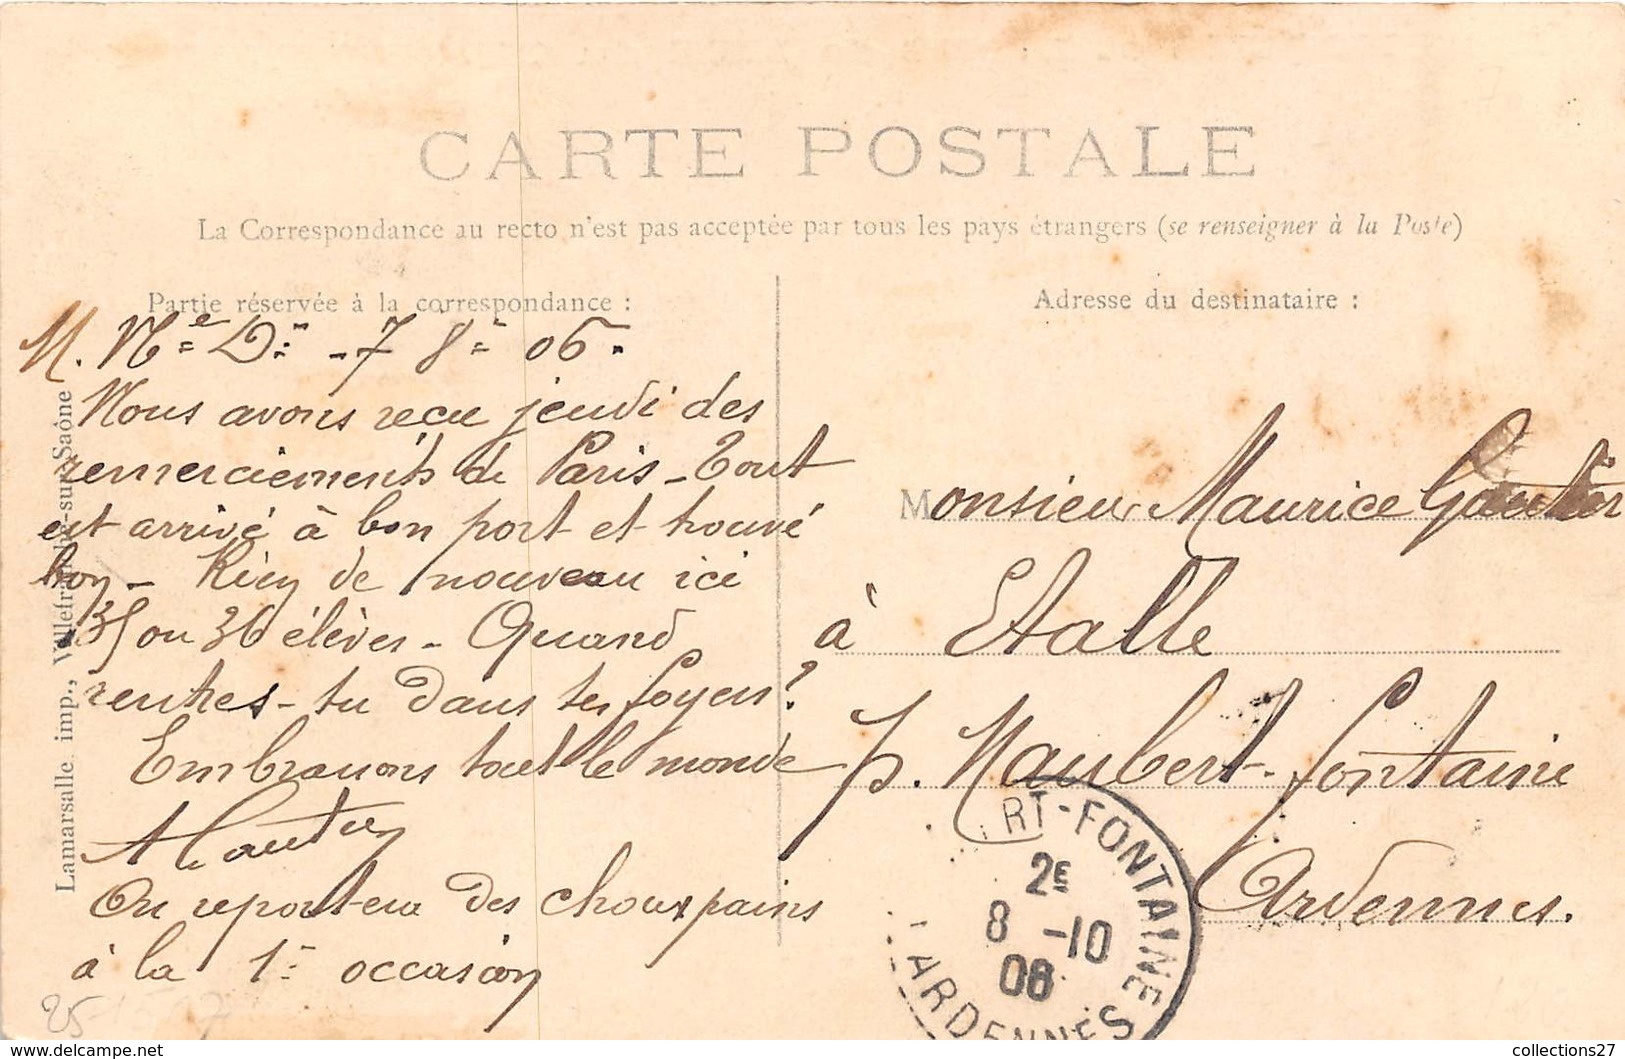 CARTE POSTALE
La Correspondance au recto n'est pas acceptée par tous les pays étrangers (se renseigner à la Poste)
Partie réservée à la correspondance :
M. Ne Dn - 7 8e 06.
Nous avons reçu jeudi des
remerciements de Paris - Tout
est arrivé à bon port et trouvé
bon - Rien de nouveau ici
35 ou 36 élèves - Quand
rentres-tu dans tes foyers?
Embrassons tout le monde
A Gautier
On reportera des choux pains
à la 1e occasion
Adresse du destinataire :
Monsieur Maurice Gautier
à Etalle
p. Maubert-Fontaine
Ardennes.
RT-FONTAINE
2E
8 -10
06
ARDENNES
Lamarsalle imp., Villefranche-sur-Saône
25
collections27